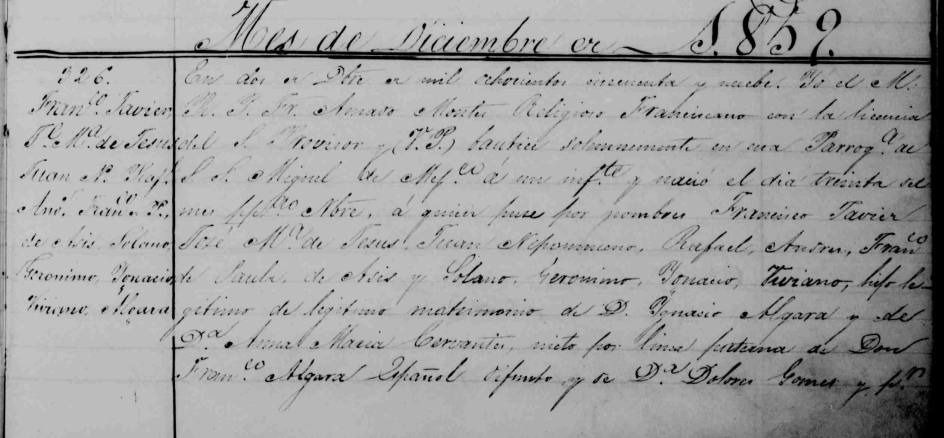 Mes de Diciembre de 1859.
226.
Franco. Javier,
Je. Ma. de Jesus
Juan N. Raf.
And. Franco. P.,
de Asis, Solano
Geronimo, Ygnacio,
Viviano, Algara
En dos de Dbre de mil ochocientos cincuenta y nuebe. Yo el M.
R. P. Fr. Amado Montes Religioso Franciscano con la licencia
del S. Provisor y (V. P.) bautice solemnemente en esa Parroqa. de
S. S. Miguel de Mejco. á un infte. y nació el dia treinta del
mes ppdo. Nbre, á quien puse por nombres Francisco Javier
José Ma. de Jesus, Juan Nepomuceno, Rafael, Andres, Franco
de Paula, de Asis y Solano, Geronimo, Ygnacio, Viviano, hijo le-
gitimo de legitimo matrimonio de D. Ygnacio Algara y de
Da. Anna Maria Cervantes, nieto por linea paterna de Don
Franco. Algara Español difunto y de Da. Dolores Gomes y pr.